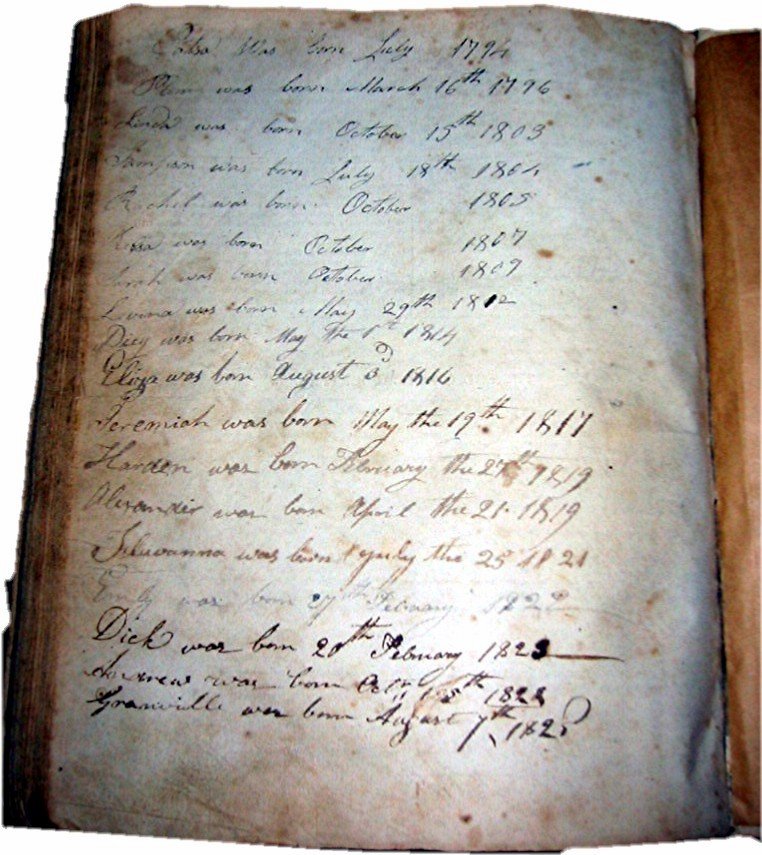 was born July 1794
was born March 16th 1796
was born October 15th 1803
was born July 18th 1804
Rachel was born October 1805
was born October 1807
Sarah was born October 1809
Lovina was born May 29th 1812
was born May the 1st 1814
Eliza was born August 3d 1816
Jeremiah was born May the 19th 1817
Harden was born February the 27th 1819
Alexander was born April the 21 1819
was born July the 25 1821
Emily was born 27th February 1822
Dick was born 20th February 1823
Andrew was born 1823
Granville was born August 7th